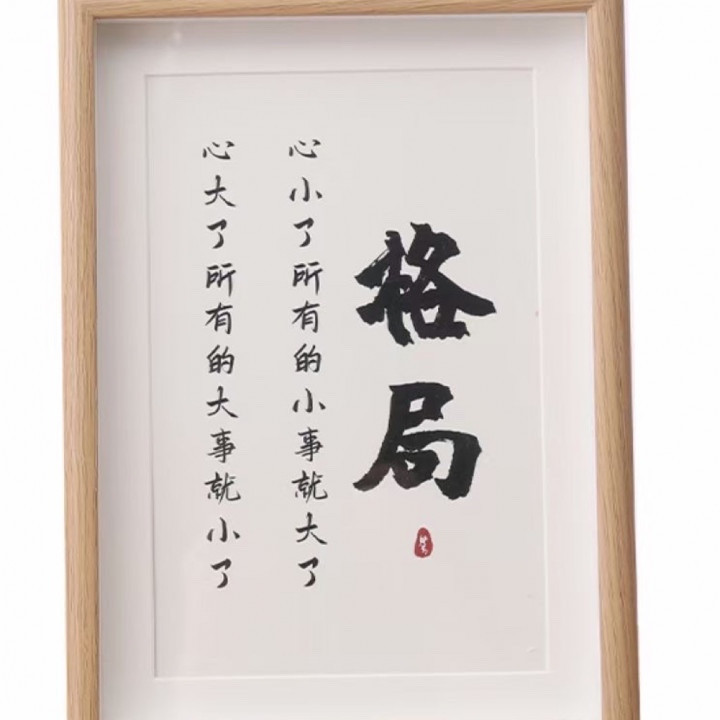 格局
心小了所有的小事就大了
心大了所有的大事就小了